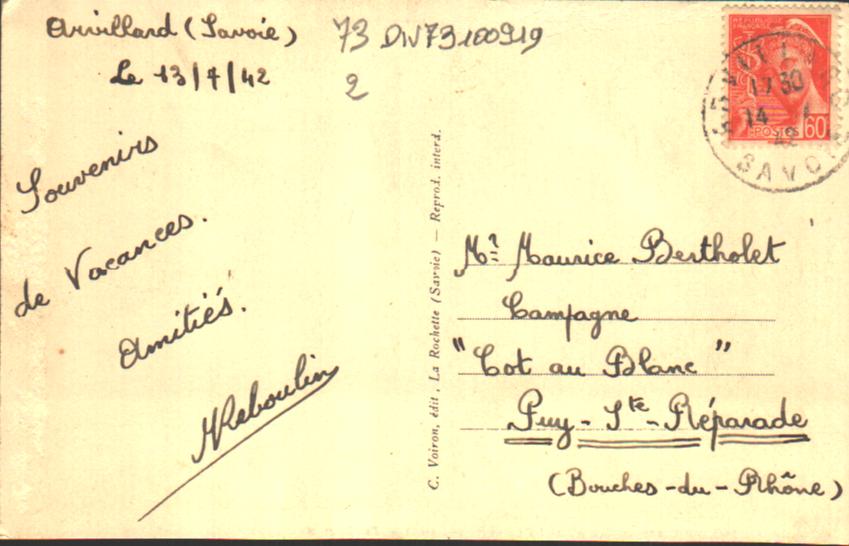 Arvillard (Savoie)
Le 13/7/42
73 DIV73100919
2
Souvenirs
de Vacances.
Amitiés.
Reboulin
C. Voiron, édit., La Rochette (Savoie) — Reprod. interd.
RÉPUBLIQUE
FRANÇAISE
POSTES 60
17 30
14
42
SAVOIE
Mr Maurice Bertholet
Campagne
"Cot au Blanc"
Puy-Ste-Réparade
(Bouches-du-Rhône)